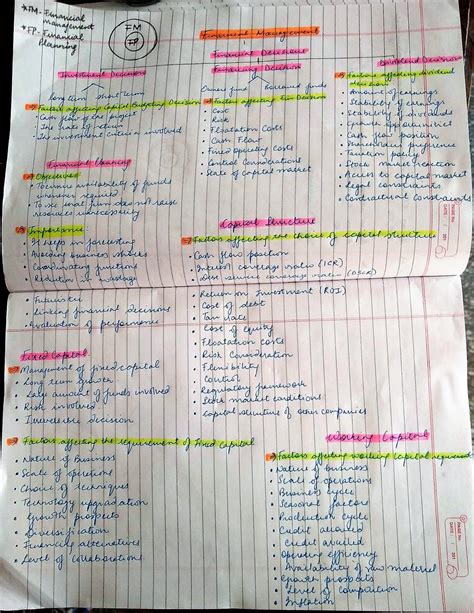 *FM - Financial
management
*FP - Financial
Planning
FM
FP
Financial Management
Financial Decisions
Investment Decision
Financing Decision
Dividend Decision
long term
short term
Owner's fund
Borrowed funds
Factors affecting Capital Budgeting Decision
Cash flow of the project
The rate of return
The investment criteria involved
Factors affecting Fin Decision
Cost
Risk
Floatation Costs
Cash Flow
Fixed Operating Costs
Control Considerations
State of capital market
Factors affecting dividend
decision
Amount of earnings
Stability of earnings
Stability of dividends
Growth opportunities
Cash flow position
Shareholders preference
Taxation policy
Stock market reaction
Access to capital market
Legal constraints
Contractual constraints
Financial Planning
Objectives
To ensure availability of funds
whenever required
To see that firm does not raise
resources unnecessarily
Importance
It helps in forecasting
Avoiding business shocks
Coordinating functions
Reduction in wastage
Futuristic
Linking financial decisions
Evaluation of performance
Capital Structure
Factors affecting the choice of capital structure
Cash flow position
Interest coverage ratio (ICR)
Debt service coverage ratio (DSCR)
Return on Investment (ROI)
Cost of debt
Tax rate
Cost of equity
Floatation costs
Risk Consideration
Flexibility
Control
Regulatory framework
Stock market conditions
Capital structure of other companies
Fixed Capital
Management of fixed capital
Long term growth
Large amount of funds involved
Risk involved
Irreversible decision
Factors affecting the requirement of Fixed Capital
Nature of Business
Scale of operations
Choice of techniques
Technology upgradation
Growth prospects
Diversification
Financing alternatives
Level of Collaborations
Working Capital
Factors affecting working capital requirement
Nature of business
Scale of operations
Business cycle
Seasonal factors
Production cycle
Credit allowed
Credit availed
Operating efficiency
Availability of raw material
Growth prospects
Level of competition
Inflation